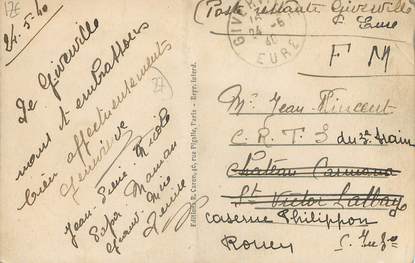 24-5-40
De Giverville
nous t'embrassons
bien affectueusement
Geneviève
Jean-Pierre Nicole
Papa Maman
Grand-Mère
Denise
Editions R. Caron, 46, rue Pigalle, Paris - Repr. Interd.
(Poste restante Giverville
Eure)
GIVERVILLE
24-5
40
EURE
F M
Mr Jean Vincent
C. R. T. S du 3e train
Château Carmona
St Victor Lalbay
caserne Philippon
Rouen